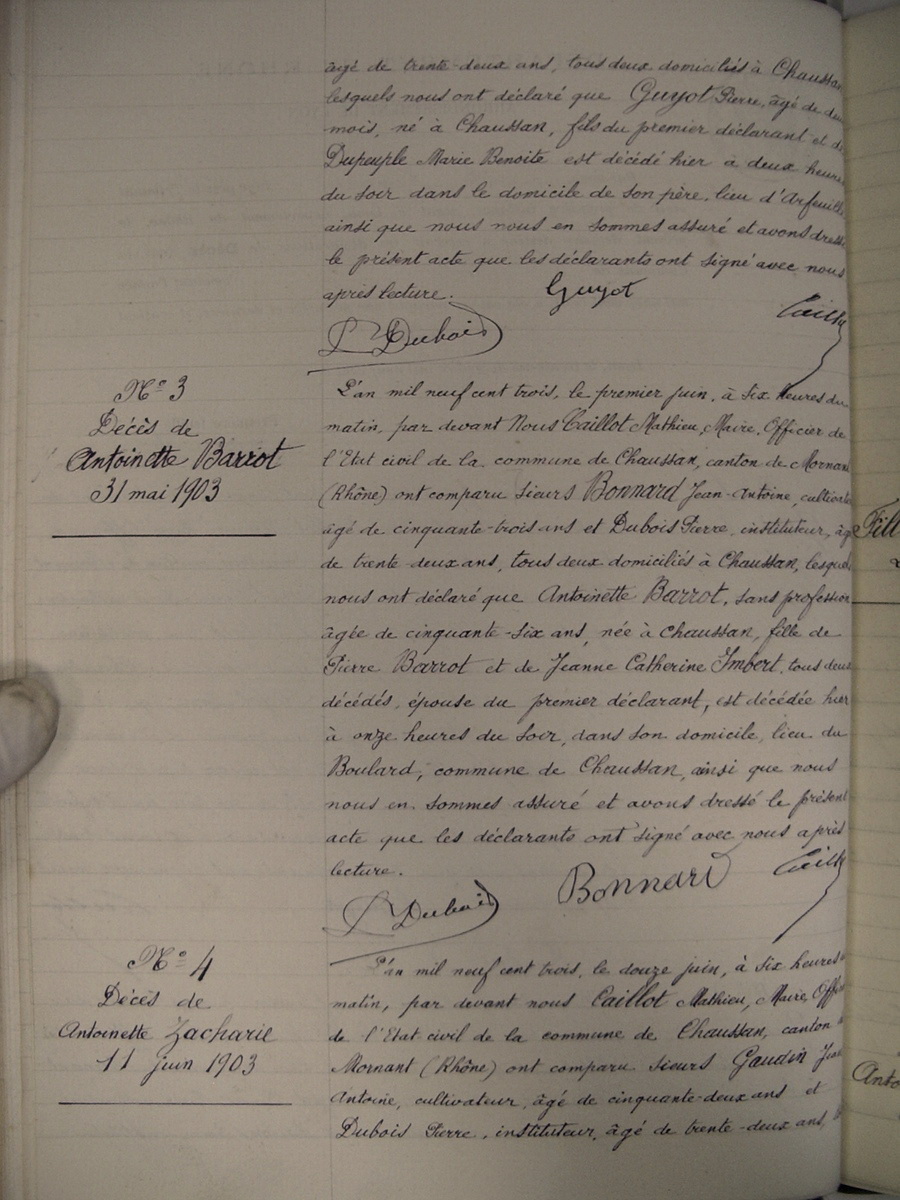 âgé de trente-deux ans, tous deux domiciliés à Chaussan
lesquels nous ont déclaré que Guyot Pierre, âgé de
mois, né à Chaussan, fils du premier déclarant et de
Dupeuple Marie Benoite est décédé hier à deux heures
du soir dans le domicile de son père, lieu d'Arfeuille
ainsi que nous nous en sommes assuré et avons dressé
le présent acte que les déclarants ont signé avec nous
après lecture. Guyot
P. Dubois
N° 3
Décès de
Antoinette Barrot
31 mai 1903
L'an mil neuf cent trois, le premier juin, à six heures du
matin, par devant Nous Caillot Mathieu, Maire, Officier de
l'Etat civil de la commune de Chaussan, canton de Mornant
(Rhône) ont comparu sieurs Bonnard Jean-Antoine, cultivateur
âgé de cinquante-trois ans et Dubois Pierre, instituteur, âgé
de trente-deux ans, tous deux domiciliés à Chaussan, lesquels
nous ont déclaré que Antoinette Barrot, sans profession
âgée de cinquante-six ans, née à Chaussan, fille de
Pierre Barrot et de Jeanne Catherine Imbert, tous deux
décédés, épouse du premier déclarant, est décédée hier
à onze heures du soir, dans son domicile, lieu du
Boulard, commune de Chaussan, ainsi que nous
nous en sommes assuré et avons dressé le présent
acte que les déclarants ont signé avec nous après
lecture. Bonnard
P. Dubois
N° 4
Décès de
Antoinette Zacharie
11 juin 1903
L'an mil neuf cent trois, le douze juin, à six heures
matin, par devant nous Caillot Mathieu, Maire, Offi
de l'Etat civil de la commune de Chaussan, canton
Mornant (Rhône) ont comparu sieurs Gaudin Jean
Antoine, cultivateur, âgé de cinquante-deux ans et
Dubois Pierre, instituteur, âgé de trente-deux ans,